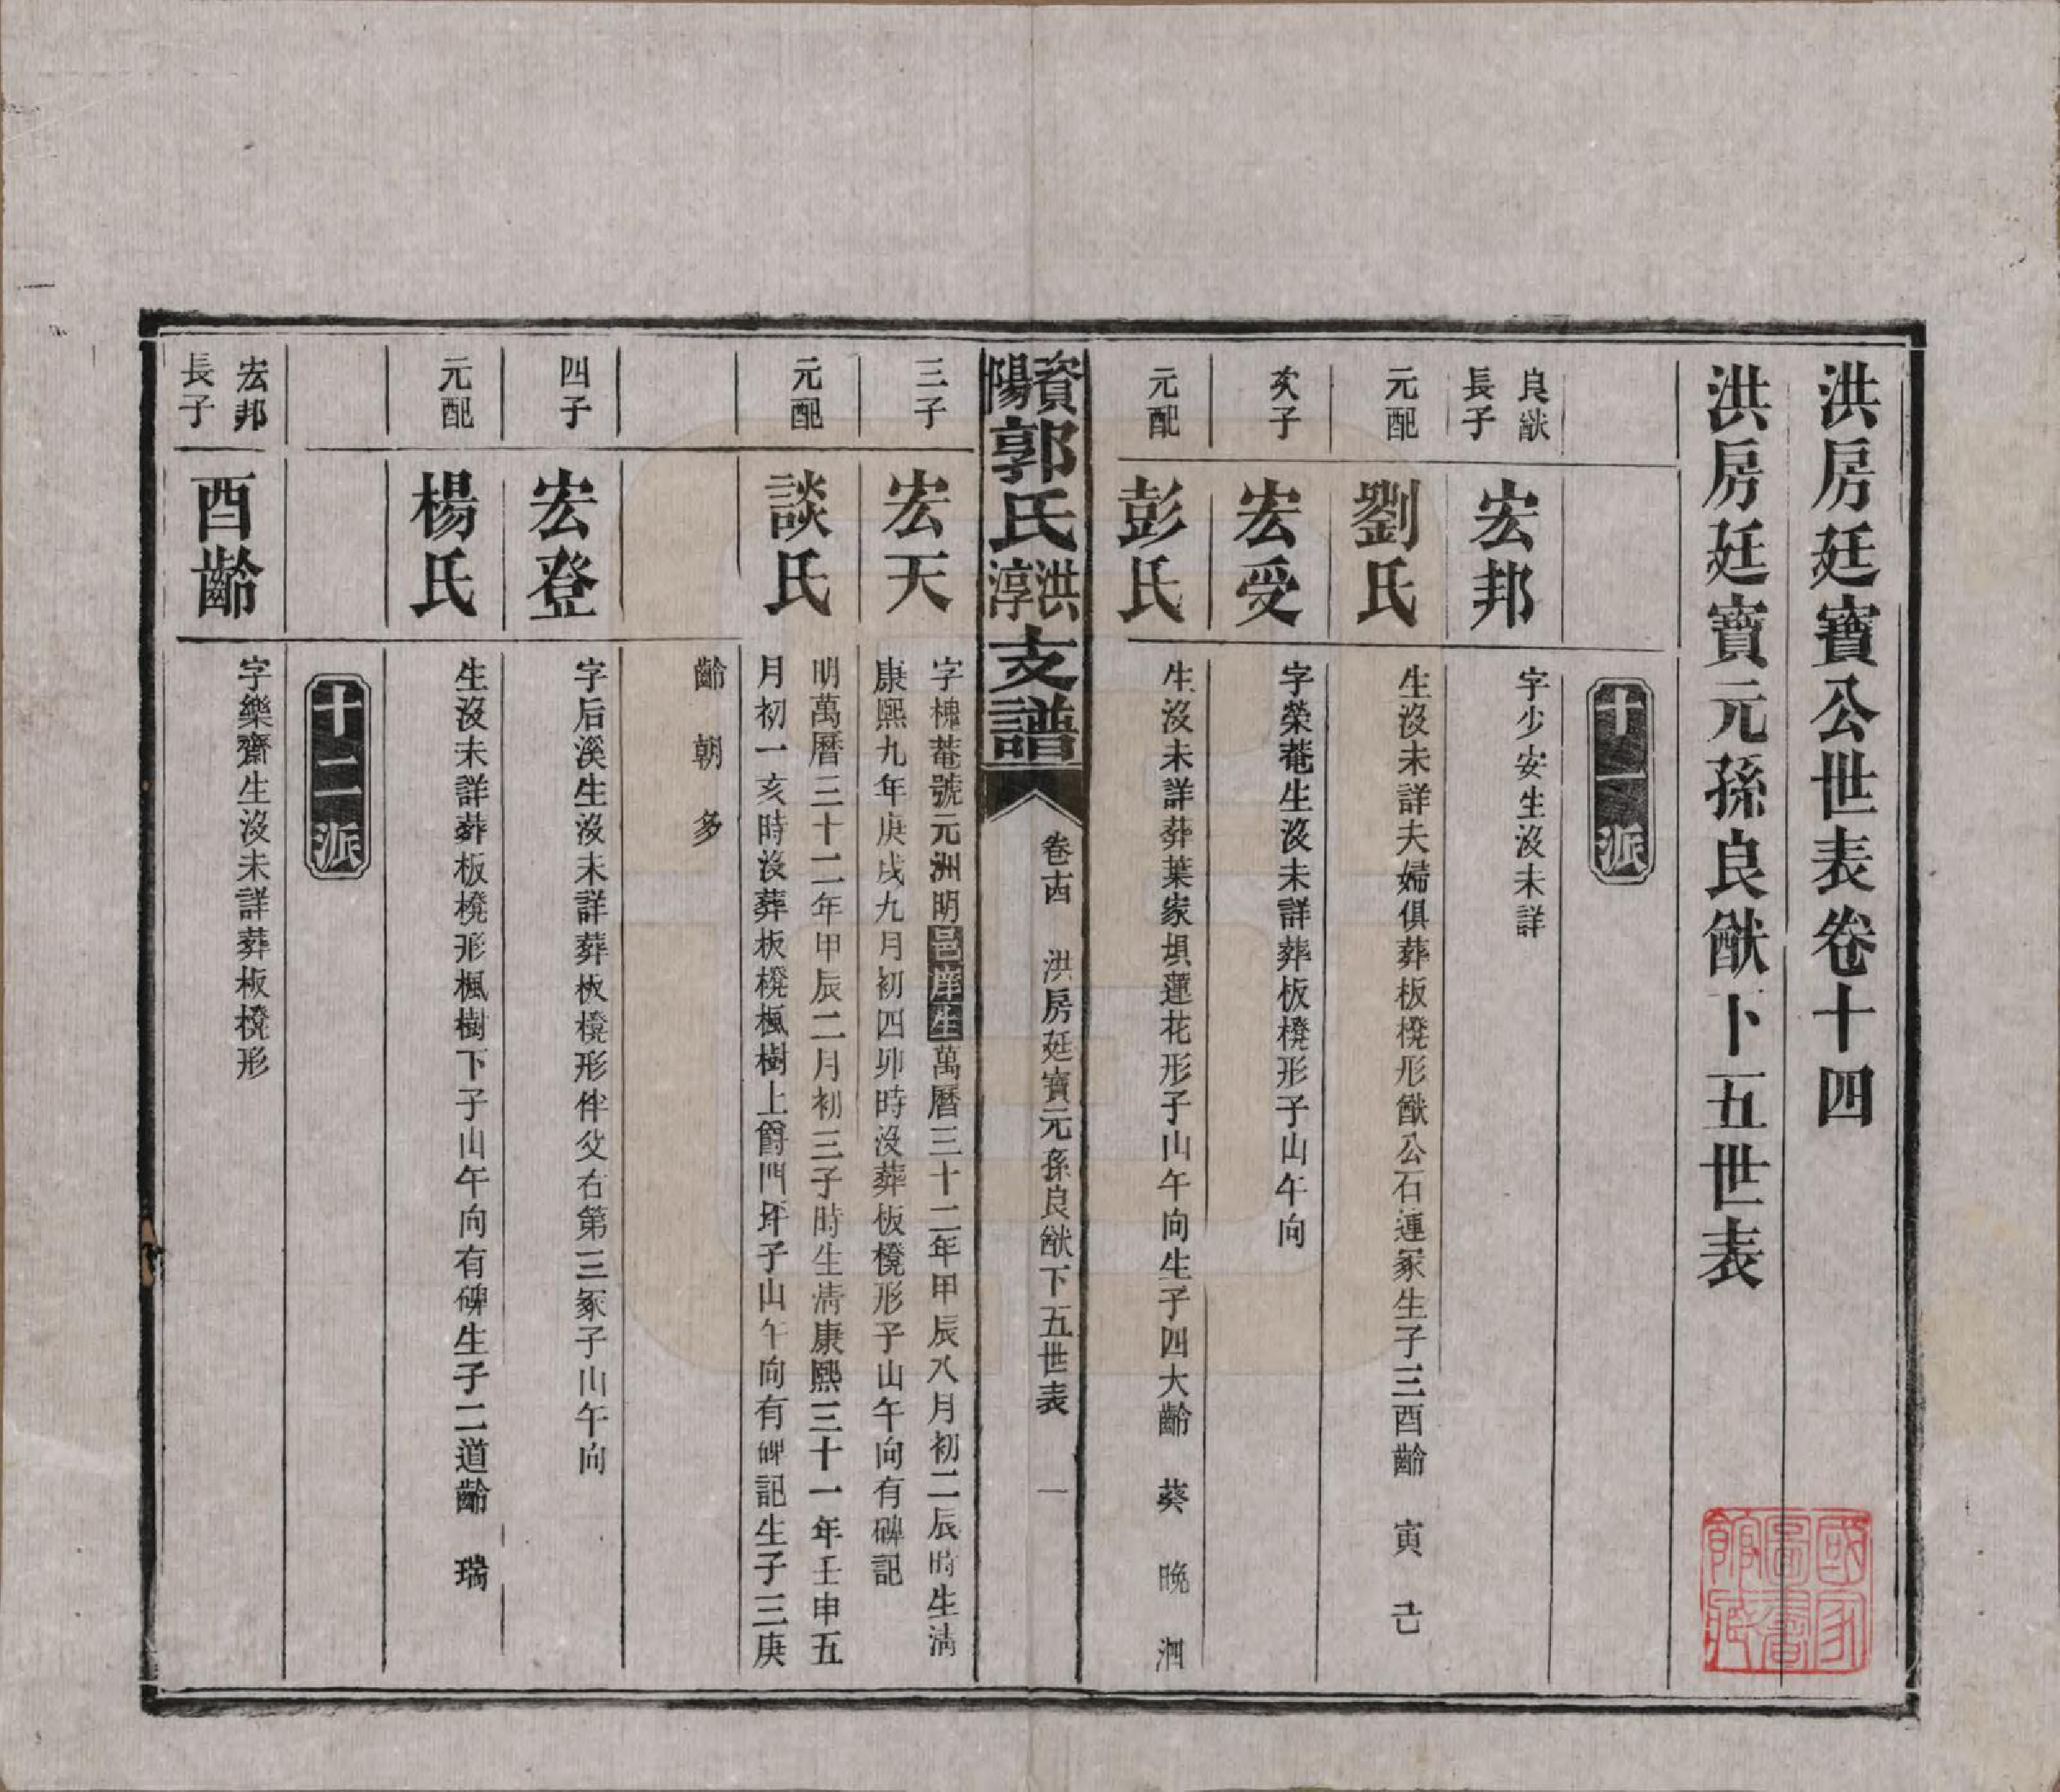 洪房廷寶公世表卷十四
洪房廷寶元孫良猷下五世表
十一派
良猷長子
宏邦
字少安生沒未詳
元配
劉氏
生沒未詳夫婦俱葬板櫈形猷公右連冢生子三酉齡 寅 己
次子
宏受
字榮菴生沒未詳葬板櫈形子山午向
元配
彭氏
生沒未詳葬葉家垻蓮花形子山午向生子四大齡 葵 晚 泗
資陽郭氏洪淳支譜
卷十四 洪房廷寶元孫良猷下五世表 一
三子
宏天
字槐菴號元洲明邑庠生萬曆三十二年甲辰八月初二辰時生清
康熙九年庚戌九月初四卯時沒葬板櫈形子山午向有碑記
元配
談氏
明萬曆三十二年甲辰二月初三子時生清康熙三十一年壬申五
月初一亥時沒葬板櫈楓樹上窨門坪子山午向有碑記生子三庚
齡 朝 多
四子
宏登
字后溪生沒未詳葬板櫈形伴父右第三冢子山午向
元配
楊氏
生沒未詳葬板櫈形楓樹下子山午向有碑生子二道齡 瑞
十二派
宏邦長子
酉齡
字樂齋生沒未詳葬板櫈形
國家圖書館藏